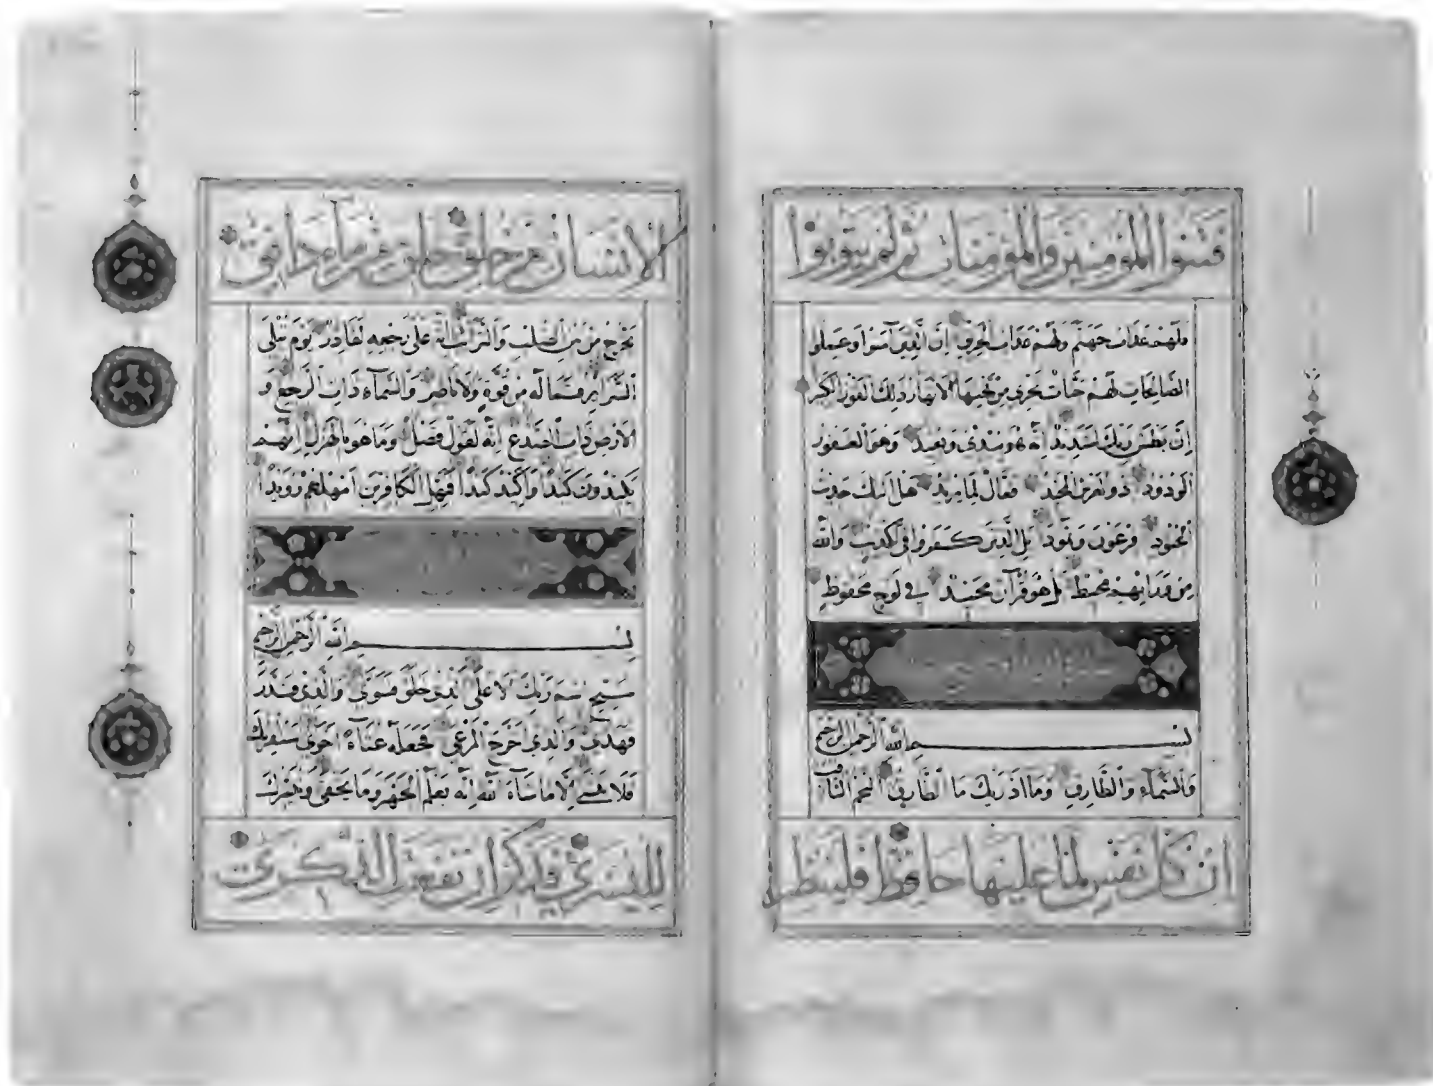 فتنوا المؤمنين والمؤمنات ثم لم يتوبوا
فلهم عذاب جهنم ولهم عذاب الحريق ان الذين آمنوا وعملوا
الصالحات لهم جنات تجري من تحتها الانهار ذلك الفوز الكبير
ان بطش ربك لشديد انه هو يبدئ ويعيد وهو الغفور
الودود ذو العرش المجيد فعال لما يريد هل اتيك حديث
الجنود فرعون وثمود بل الذين كفروا في تكذيب والله
من ورائهم محيط بل هو قرآن مجيد في لوح محفوظ
بسم الله الرحمن الرحيم
والسماء والطارق وما ادريك ما الطارق النجم الثاقب
ان كل نفس لما عليها حافظ فلينظر
الانسان مم خلق خلق من ماء دافق
يخرج من بين الصلب والترائب انه على رجعه لقادر يوم تبلى
السرائر فما له من قوة ولا ناصر والسماء ذات الرجع و
الارض ذات الصدع انه لقول فصل وما هو بالهزل انهم
يكيدون كيدا واكيد كيدا فمهل الكافرين امهلهم رويدا
بسم الله الرحمن الرحيم
سبح اسم ربك الاعلى الذي خلق فسوى والذي قدر
فهدى والذي اخرج المرعى فجعله غثاء احوى سنقرئك
فلا تنسى الا ما شاء الله انه يعلم الجهر وما يخفى ونيسرك
لليسرى فذكر ان نفعت الذكرى